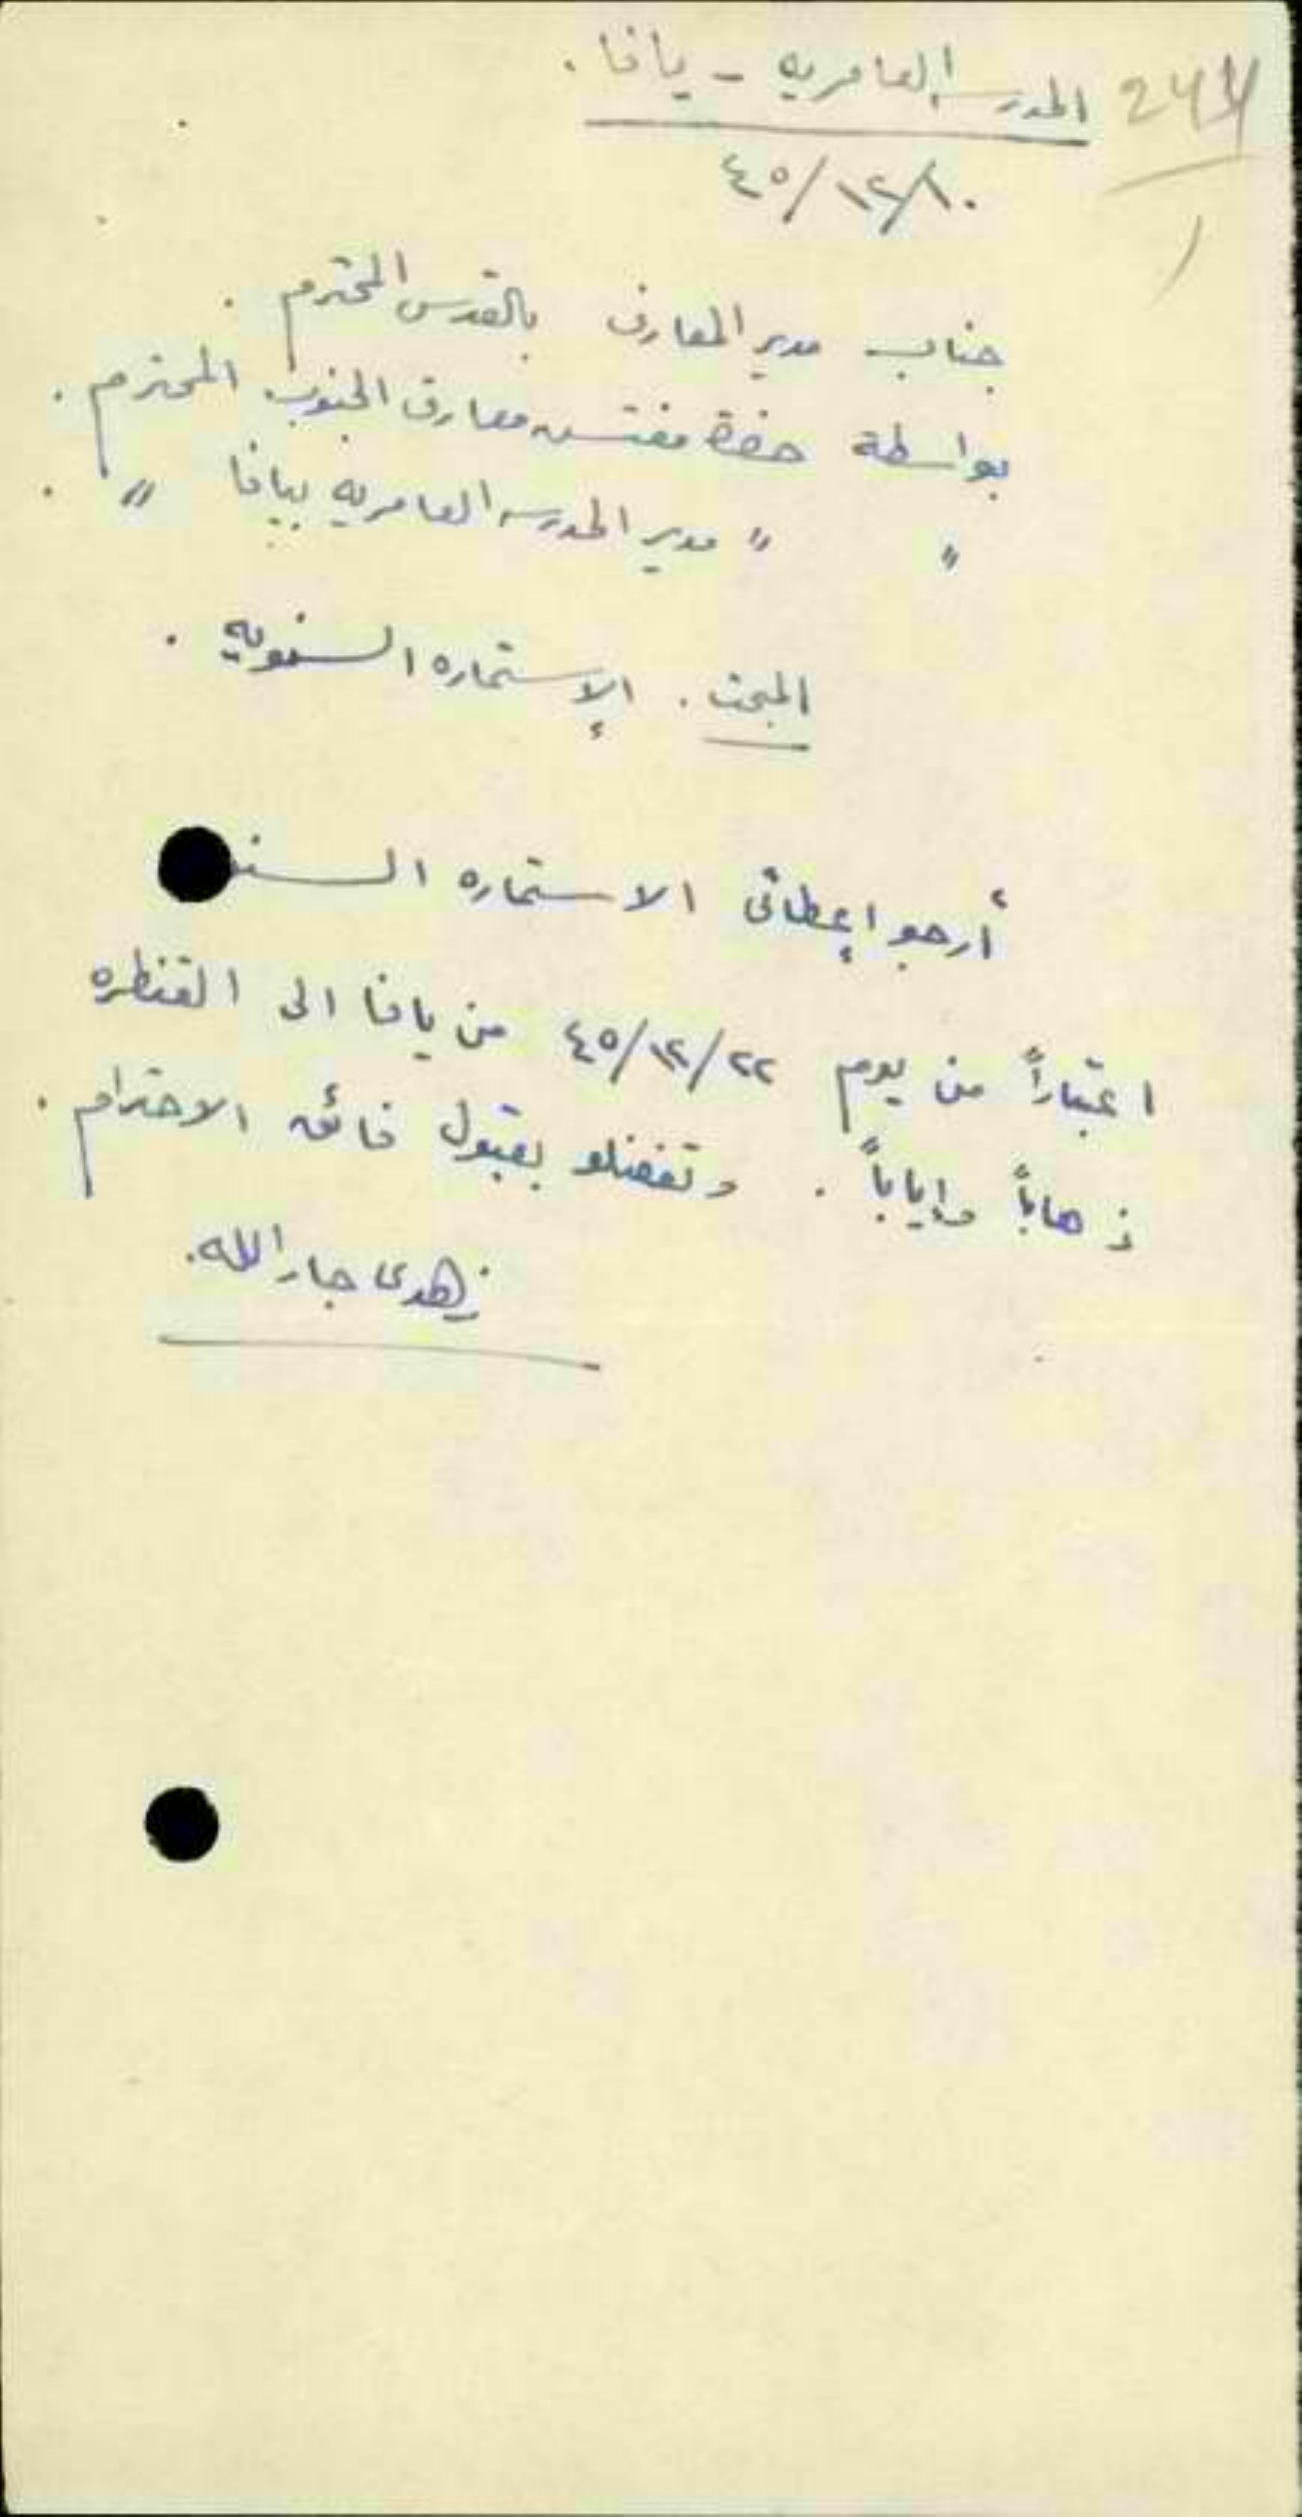 المدرسه العامريه - يافا .
٤٥/١٢/١٠
جناب مدير المعارف بالقدس المحترم .
بواسطة حضرة مفتش معارف الجنوب المحترم .
" " مدير المدرسه العامريه بيافا " .
المبحث . الإستماره السنويه .
أرجو إعطائى الاستماره السنو
اعتباراً من يوم ٤٥/١٢/٢٢ من يافا الى القنطره
ذهاباً وإياباً . وتفضلو بقبول فائق الاحترام .
زهدى جارالله .